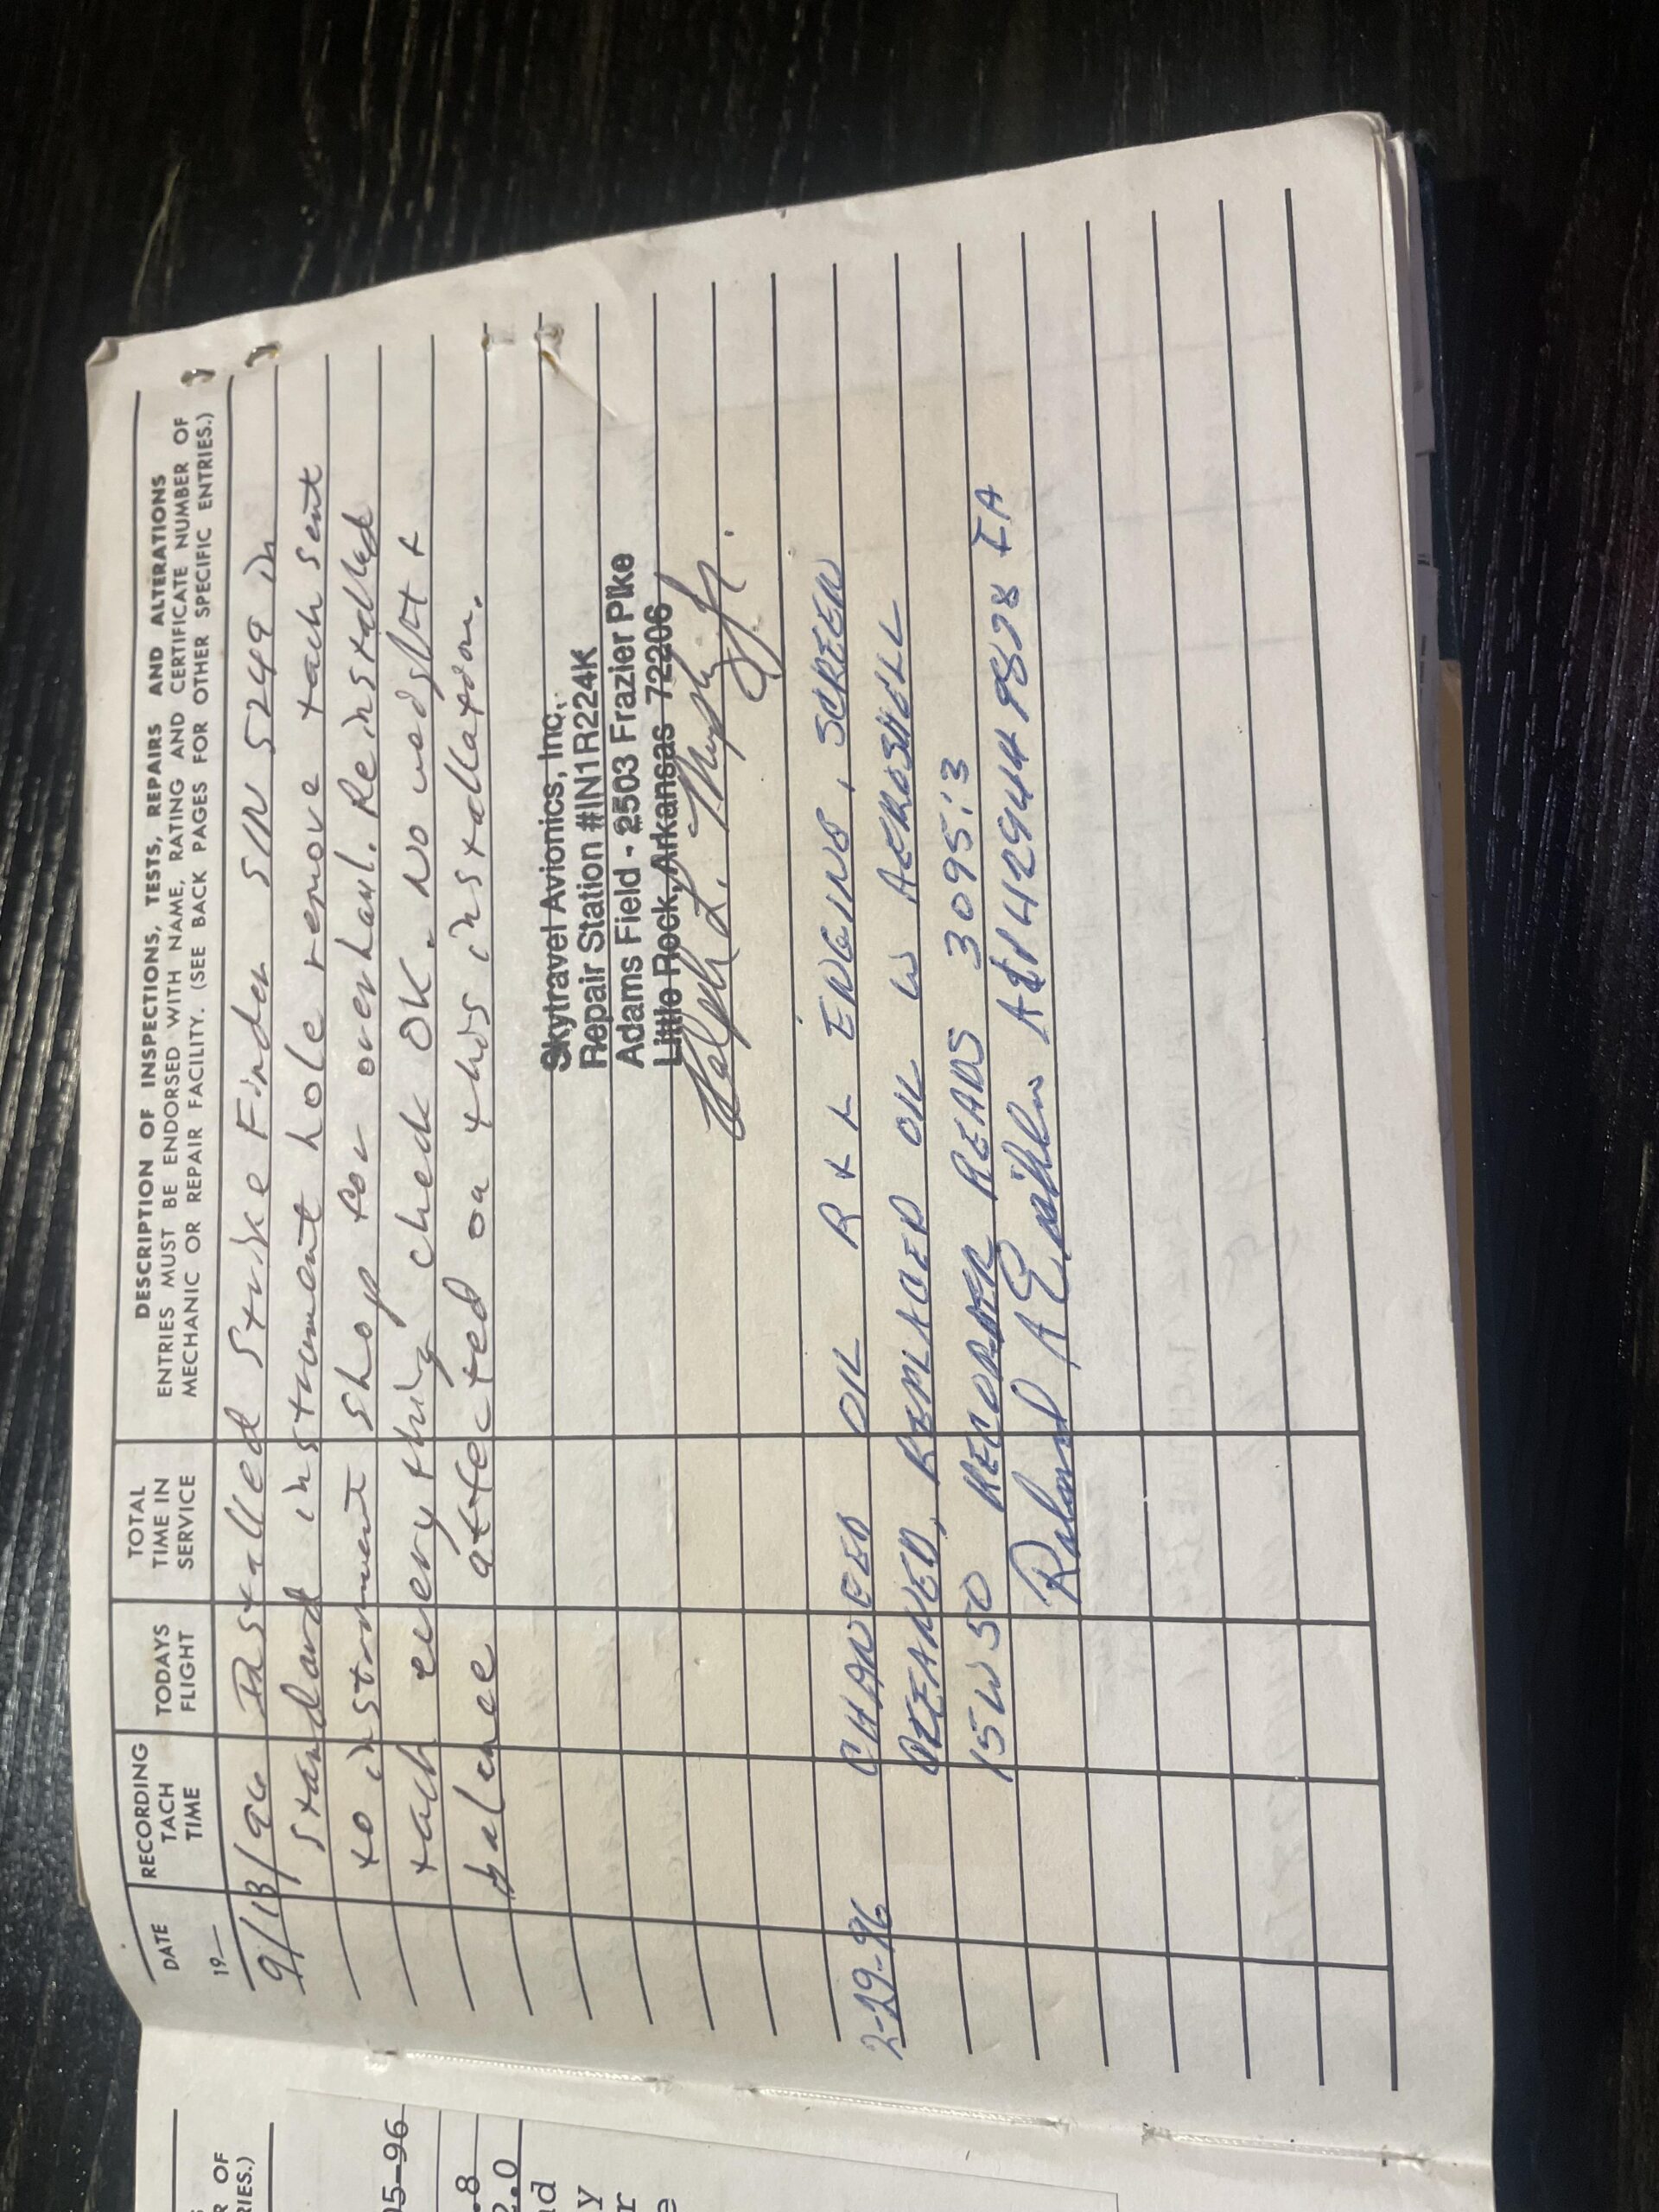 DATE
19—
RECORDING
TACH
TIME
TODAYS
FLIGHT
TOTAL
TIME IN
SERVICE
DESCRIPTION OF INSPECTIONS, TESTS, REPAIRS AND ALTERATIONS
ENTRIES MUST BE ENDORSED WITH NAME, RATING AND CERTIFICATE NUMBER OF
MECHANIC OR REPAIR FACILITY. (SEE BACK PAGES FOR OTHER SPECIFIC ENTRIES.)
9/13/96 Installed Strike Finder S/N 5249 in
standard instrument hole remove tach sent
to instrument shop for overhaul. Reinstalled
tach everything check OK. No weight &
balance affected on this installation.
Skytravel Avionics, Inc.
Repair Station #IN1R224K
Adams Field - 2503 Frazier Pike
Little Rock, Arkansas 72206
Ralph L. Jr.
2-29-96 CHANGED OIL R & L ENGINE, SCREEN
CLEANED, REPLACED OIL W AEROSHELL
15W50 RECORDER READS 3095.13
A&P 429448878 IA
05-96
.8
2.0
nd
y
r
e
OF
RIES.)